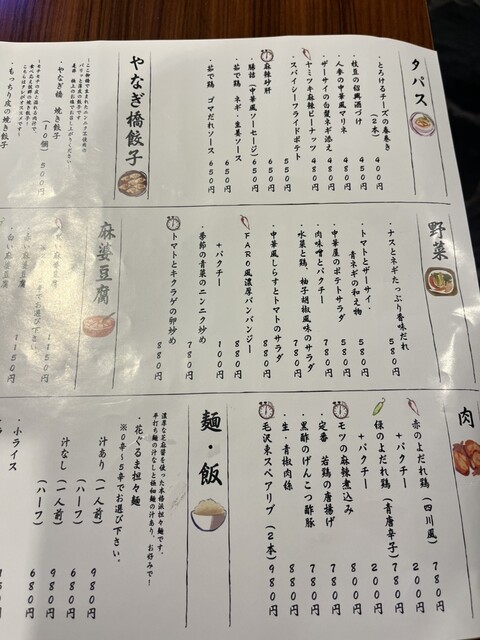 タパス
・とろけるチーズの春巻き（2本） 400円
・枝豆の紹興酒づけ 450円
・人参の中華風マリネ 480円
・ザーサイの白髪ネギ添え 480円
・ヤミツキ麻辣ピーナッツ 480円
・スパイシーフライドポテト 550円
・麻辣砂肝 650円
・腸詰（中華風ソーセージ） 650円
・茹で鶏 ネギ・生姜ソース 650円
・茹で鶏 ゴマだれソース 650円
やなぎ橋餃子
・やなぎ橋 焼き餃子（10個） 500円
・もっちり皮の焼き餃子
野菜
・ナスとネギたっぷり香味だれ 580円
・トマトとザーサイ・青ネギの和え物 580円
・中華屋のポテトサラダ 580円
・肉味噌とパクチー 780円
・水菜と鶏、柚子胡椒風味のサラダ 780円
・中華風しらすとトマトのサラダ 880円
・FARO風濃厚バンバンジー 880円
＋パクチー 100円
・季節の青菜のニンニク炒め 780円
・トマトとキクラゲの卵炒め 880円
麻婆豆腐
辛さお選び下さい。
1150円
・白い麻婆豆腐 1150円
肉
・赤のよだれ鶏（四川風） 780円
＋パクチー 200円
・緑のよだれ鶏（青唐辛子） 780円
＋パクチー 200円
・モツの麻辣煮込み 880円
・定番 若鶏の唐揚げ 780円
・黒酢のげんこつ酢豚 780円
・生・青椒肉絲 880円
・毛沢東スペアリブ（2本） 980円
麺・飯
・花ぐるま担々麺
濃厚な芝麻醤を使った本格派担々麺です。
平打ち麺の汁なしと極細麺の汁あり、お好みで！
※0辛～5辛でお選び下さい。
汁あり（一人前） 980円
（ハーフ） 680円
汁なし（一人前） 980円
（ハーフ） 680円
・小ライス